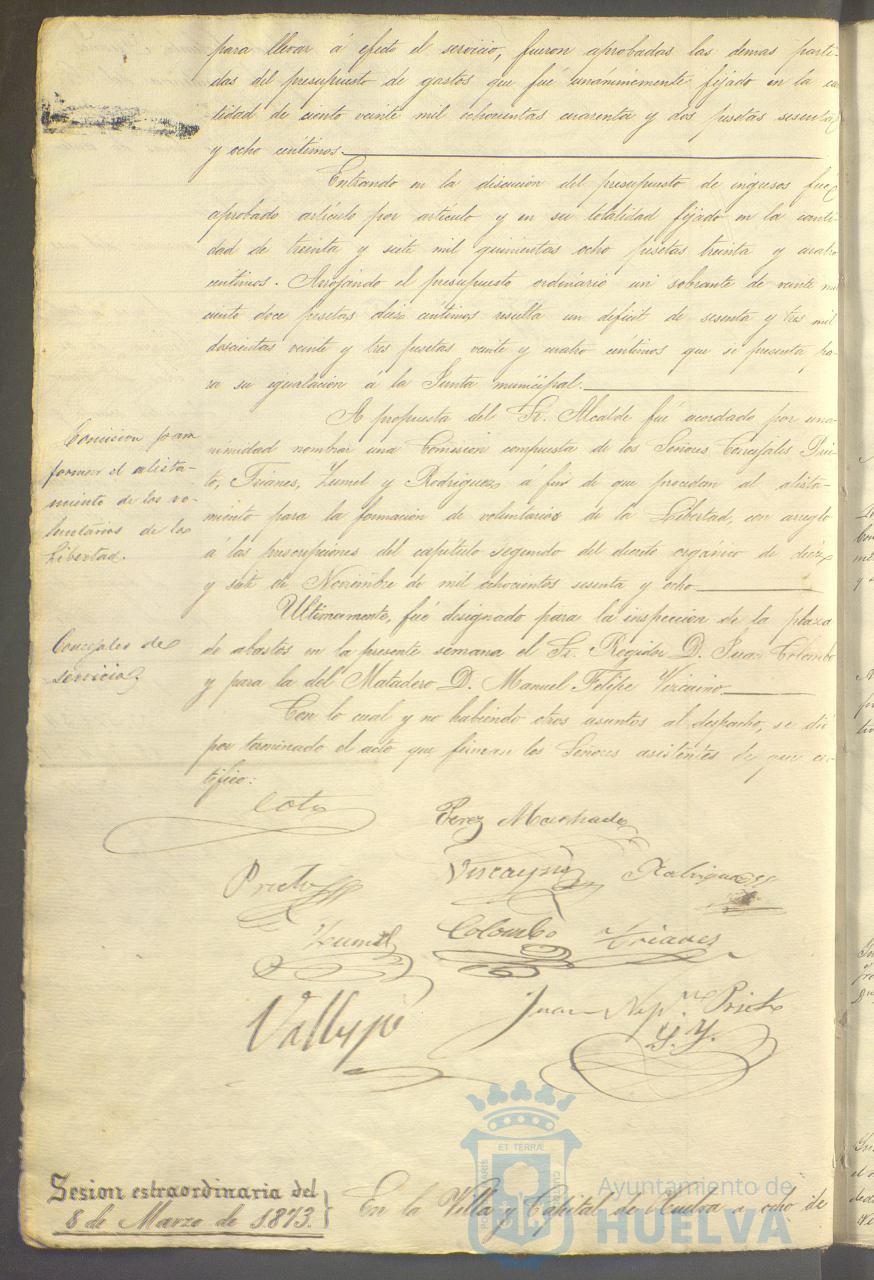 para llevar á efecto el servicio, fueron aprobadas las demas parti-
das del presupuesto de gastos que fué unanimemente fijado en la can
tidad de ciento veinte mil ochocientas cuarenta y dos pesetas sesenta
y ocho céntimos.
Entrando en la discucion del presupuesto de ingresos fué
aprobado artículo por artículo y en su totalidad fijado en la canti-
dad de treinta y siete mil quinientas ocho pesetas treinta y cuatro
centimos. Arrojando el presupuesto ordinario un sobrante de veinte mil
ciento doce pesetas diez céntimos resulta un deficit de sesenta y tres mil
doscientas veinte y tres pesetas veinte y cuatro centimos que se presenta pa-
ra su igualacion á la Junta municipal.
Comision para
formar el alista-
miento de los vo-
luntarios de la
Libertad.
A propuesta del Sr. Alcalde fué acordado por una-
nimidad nombrar una Comision compuesta de los Señores Concejales Prie-
to, Trianes, Zumel y Rodriguez á fin de que procedan al alista-
miento para la formacion de voluntarios de la Libertad, con arreglo
á las prescripciones del capítulo segundo del decreto orgánico de diez
y siete de Noviembre de mil ochocientos sesenta y ocho
Concejales de
servicio
Ultimamente, fué designado para la inspeccion de la plaza
de abastos en la presente semana el Sr. Regidor D. Juan Colombo
y para la del Matadero D. Manuel Felipe Vizcaino
Con lo cual y no habiendo otros asuntos al despacho, se dió
por terminado el acto que firman los Señores asistentes de que cer-
tifico:
Coto
Perez Machado
Prieto
Viscayno
Rodriguez
Zumel
Colombo
Trianes
Vallejo
Juan Nepº. Prieto
Sesion estraordinaria del
8 de Marzo de 1873.
En la Villa y Capital de Huelva a ocho de
ET TERRÆ
Ayuntamiento de
HUELVA